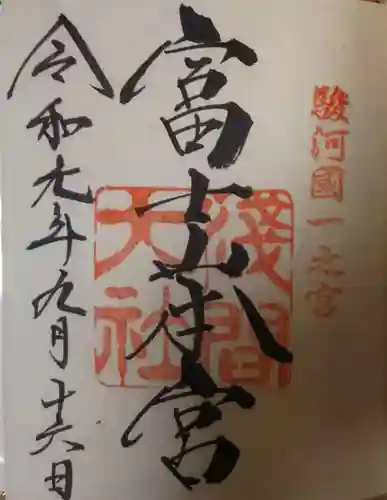 駿河國一之宮
富士本宮
淺間大社
令和元年九月十六日